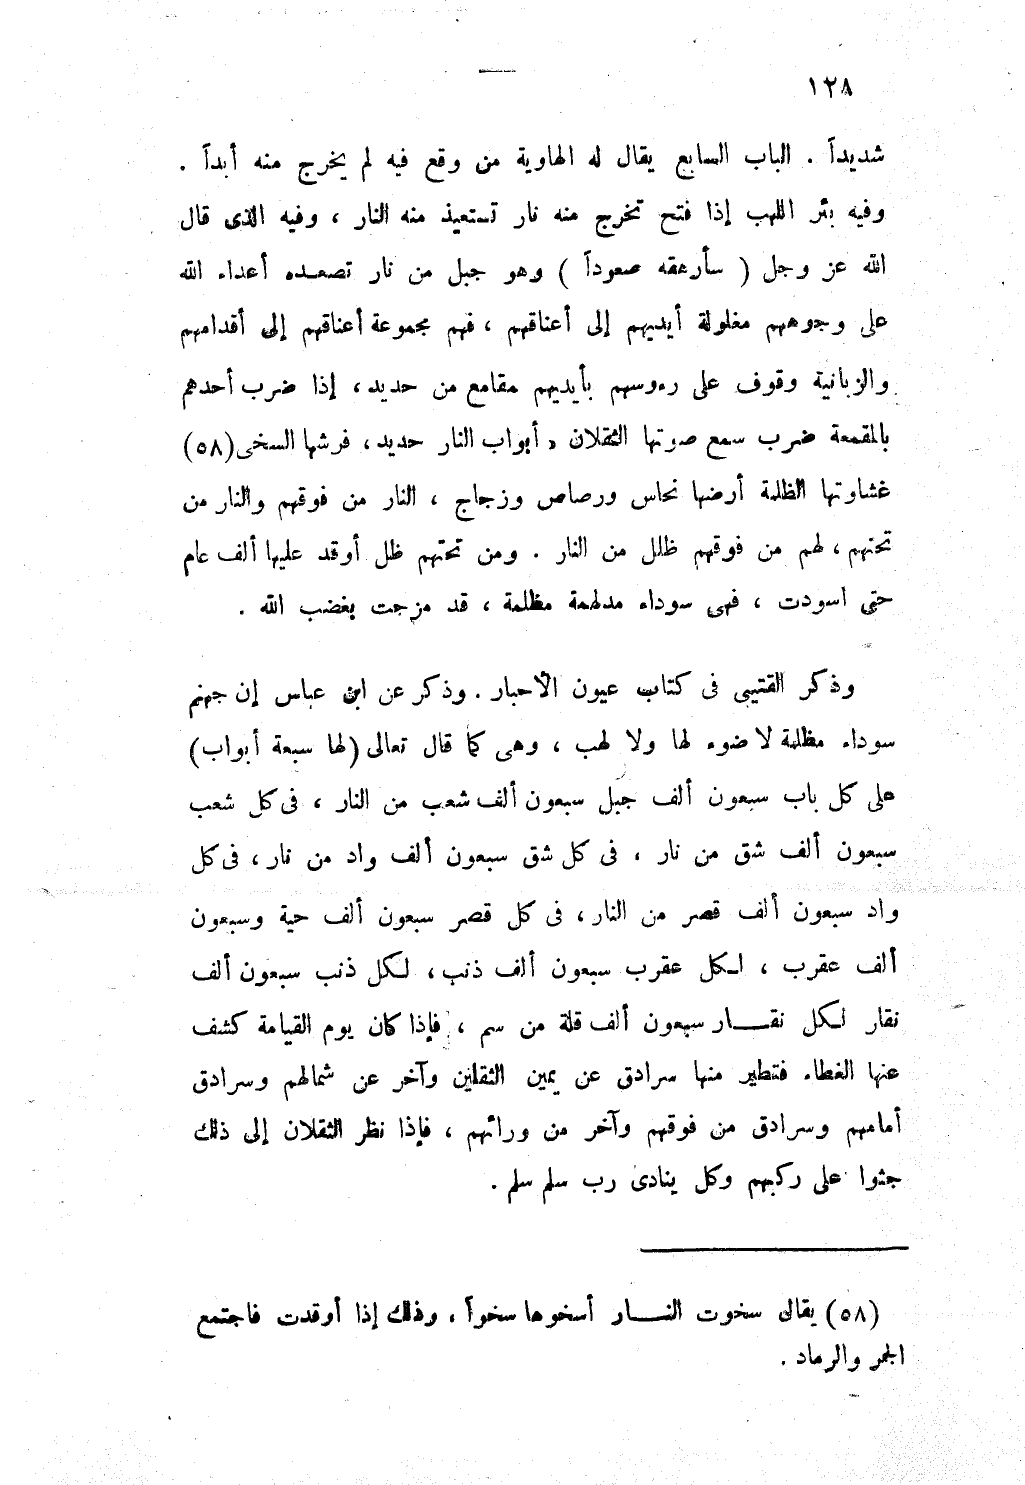 ١٢٨
شديداً . الباب السابع يقال له الهاوية من وقع فيه لم يخرج منه أبداً .
وفيه بئر اللهب إذا فتح تخرج منه نار تستعيذ منه النار ، وفيه الذى قال
الله عز وجل ( سأرهقه صعوداً ) وهو جبل من نار تصعده أعداء الله
على وجوههم مغلولة أيديهم إلى أعناقهم ، فهم مجموعة أعناقهم إلى أقدامهم
والزبانية وقوف على رءوسهم بأيديهم مقامع من حديد ، إذا ضرب أحدهم
بالمقمعة ضرب سمع صوتها الثقلان ، أبواب النار حديد ، فرشها السخى (٥٨)
غشاوتها الظلمة أرضها نحاس ورصاص وزجاج ، النار من فوقهم والنار من
تحتهم ، لهم من فوقهم ظلل من النار . ومن تحتهم ظل أوقد عليها ألف عام
حتى اسودت ، فهى سوداء مدلهمة مظلمة ، قد مزجت بغضب الله .
وذكر القتيبى فى كتاب عيون الأحبار . وذكر عن ابن عباس إن جهنم
سوداء مظلمة لا ضوء لها ولا لهب ، وهى كما قال تعالى (لها سبعة أبواب)
على كل باب سبعون ألف جبل سبعون ألف شعب من النار ، فى كل شعب
سبعون ألف شق من نار ، فى كل شق سبعون ألف واد من نار ، فى كل
واد سبعون ألف قصر من النار ، فى كل قصر سبعون ألف حية وسبعون
ألف عقرب ، لكل عقرب سبعون ألف ذنب ، لكل ذنب سبعون ألف
نقار لكل نقار سبعون ألف قلة من سم ، فإذا كان يوم القيامة كشف
عنها الغطاء فتطير منها سرادق عن يمين الثقلين وآخر عن شمالهم وسرادق
أمامهم وسرادق من فوقهم وآخر من ورائهم ، فإذا نظر الثقلان إلى ذلك
جثوا على ركبهم وكل ينادى رب سلم سلم .
(٥٨) يقال سخوت النار أسخوها سخواً ، وذلك إذا أوقدت فاجتمع
الجمر والرماد .